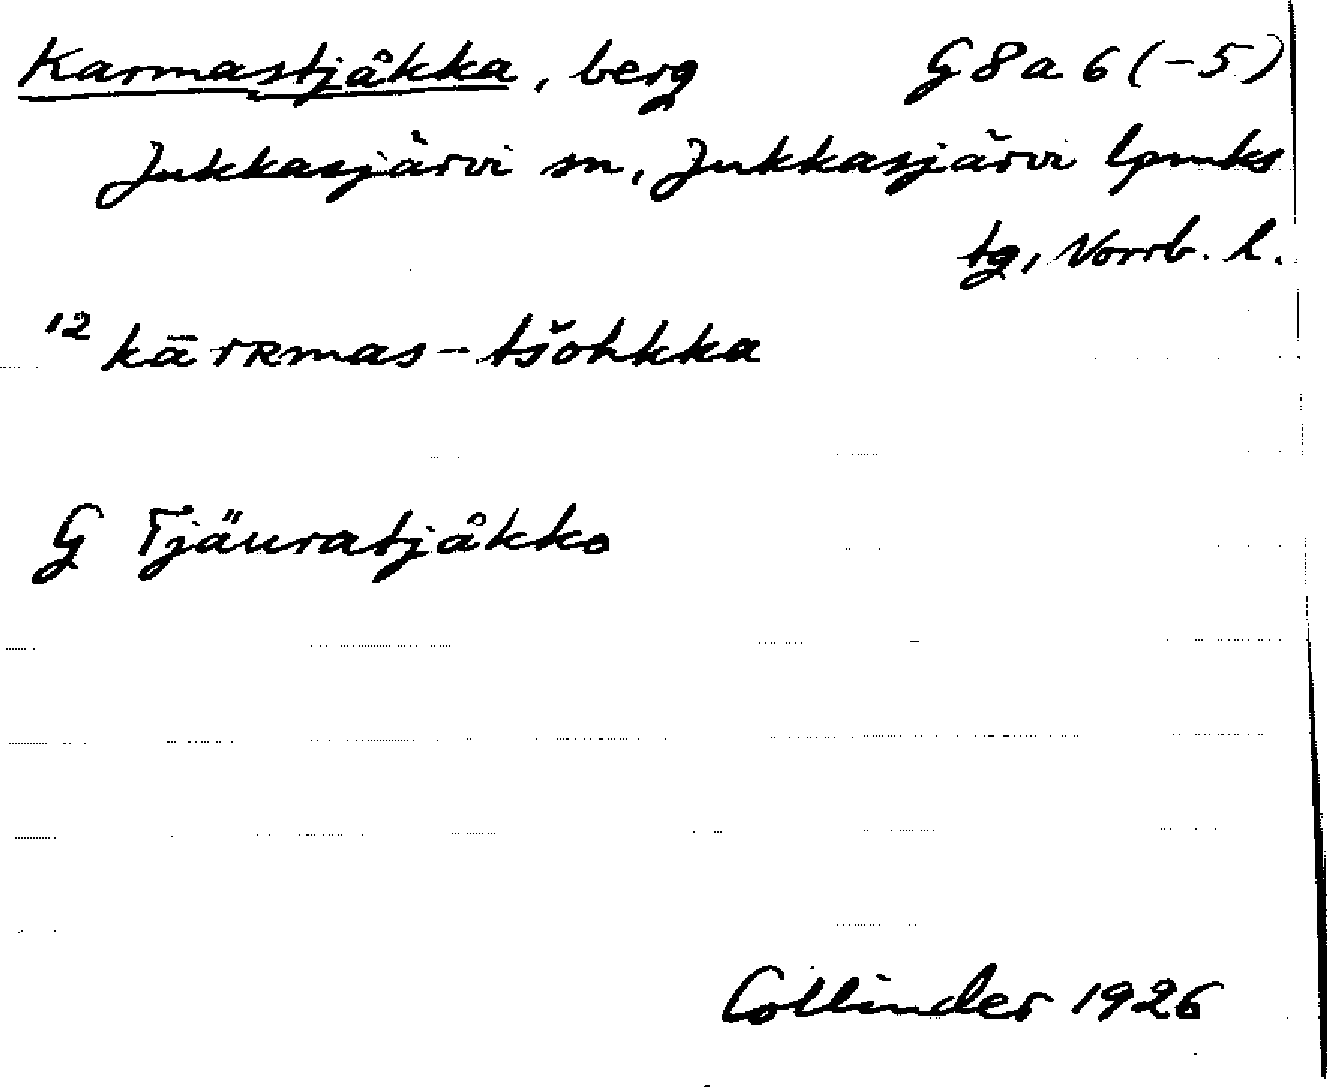 Karmastjåkka, berg G 8 a 6 (-5)
Jukkasjärvi sn, Jukkasjärvi lpmks
tg, Norrb. l.
12 kārrʀmas-tšohkka
G Tjäuratjåkko
Collinder 1926